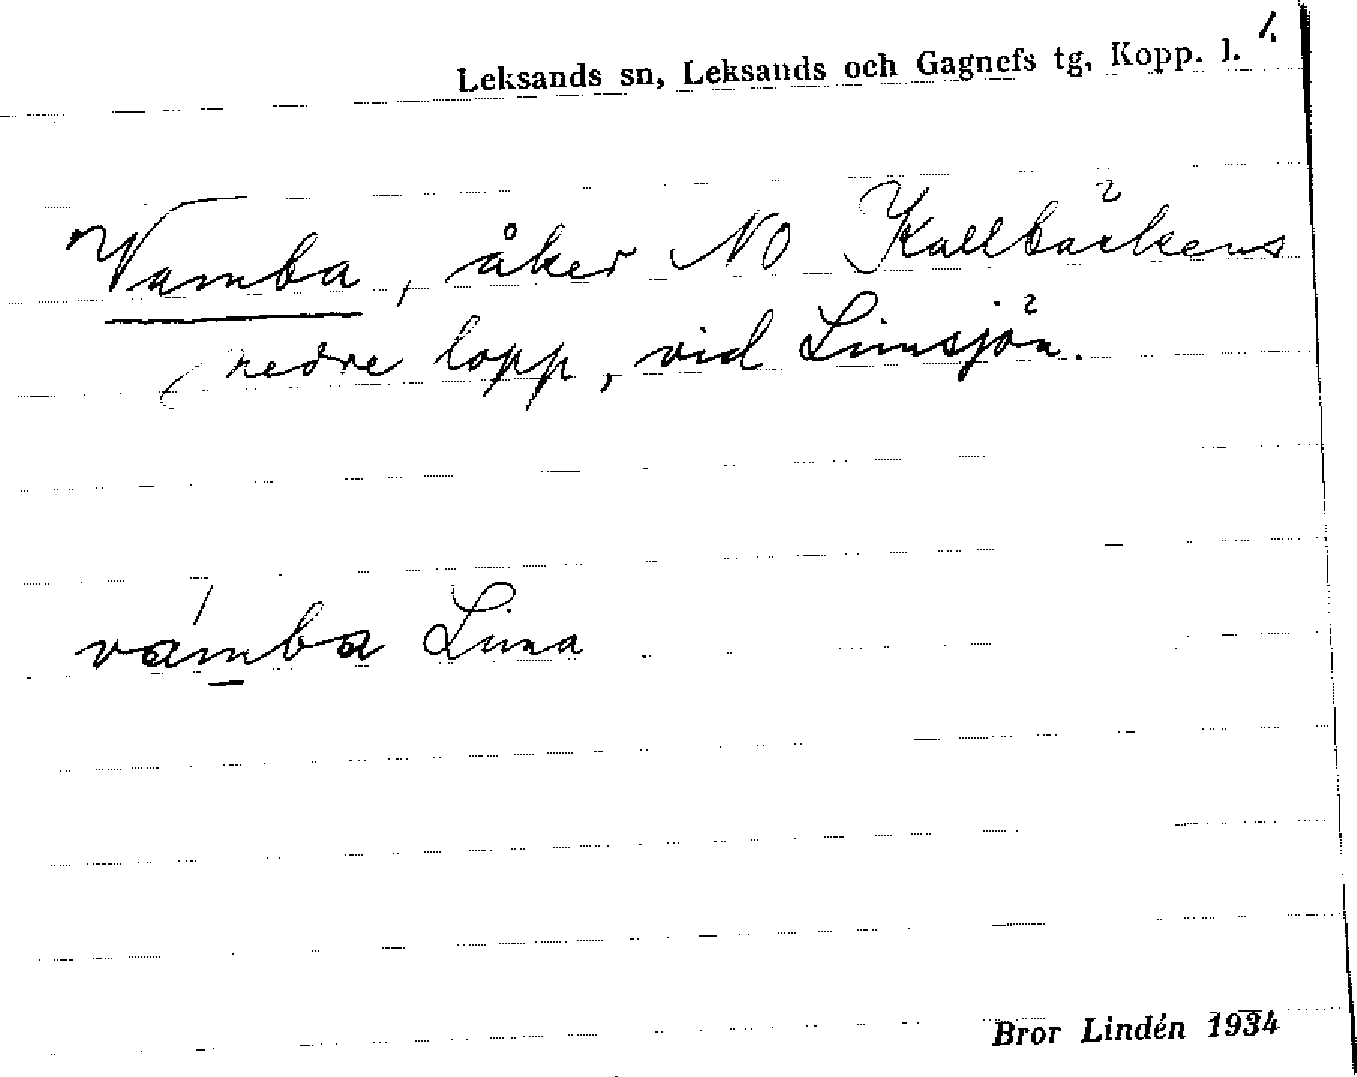 1.
Leksands sn, Leksands och Gagnefs tg, Kopp. l.
Vamba, åker NO Kallbäckens
nedre lopp, vid Limsjön.
vámba Lima
Bror Lindén 1934